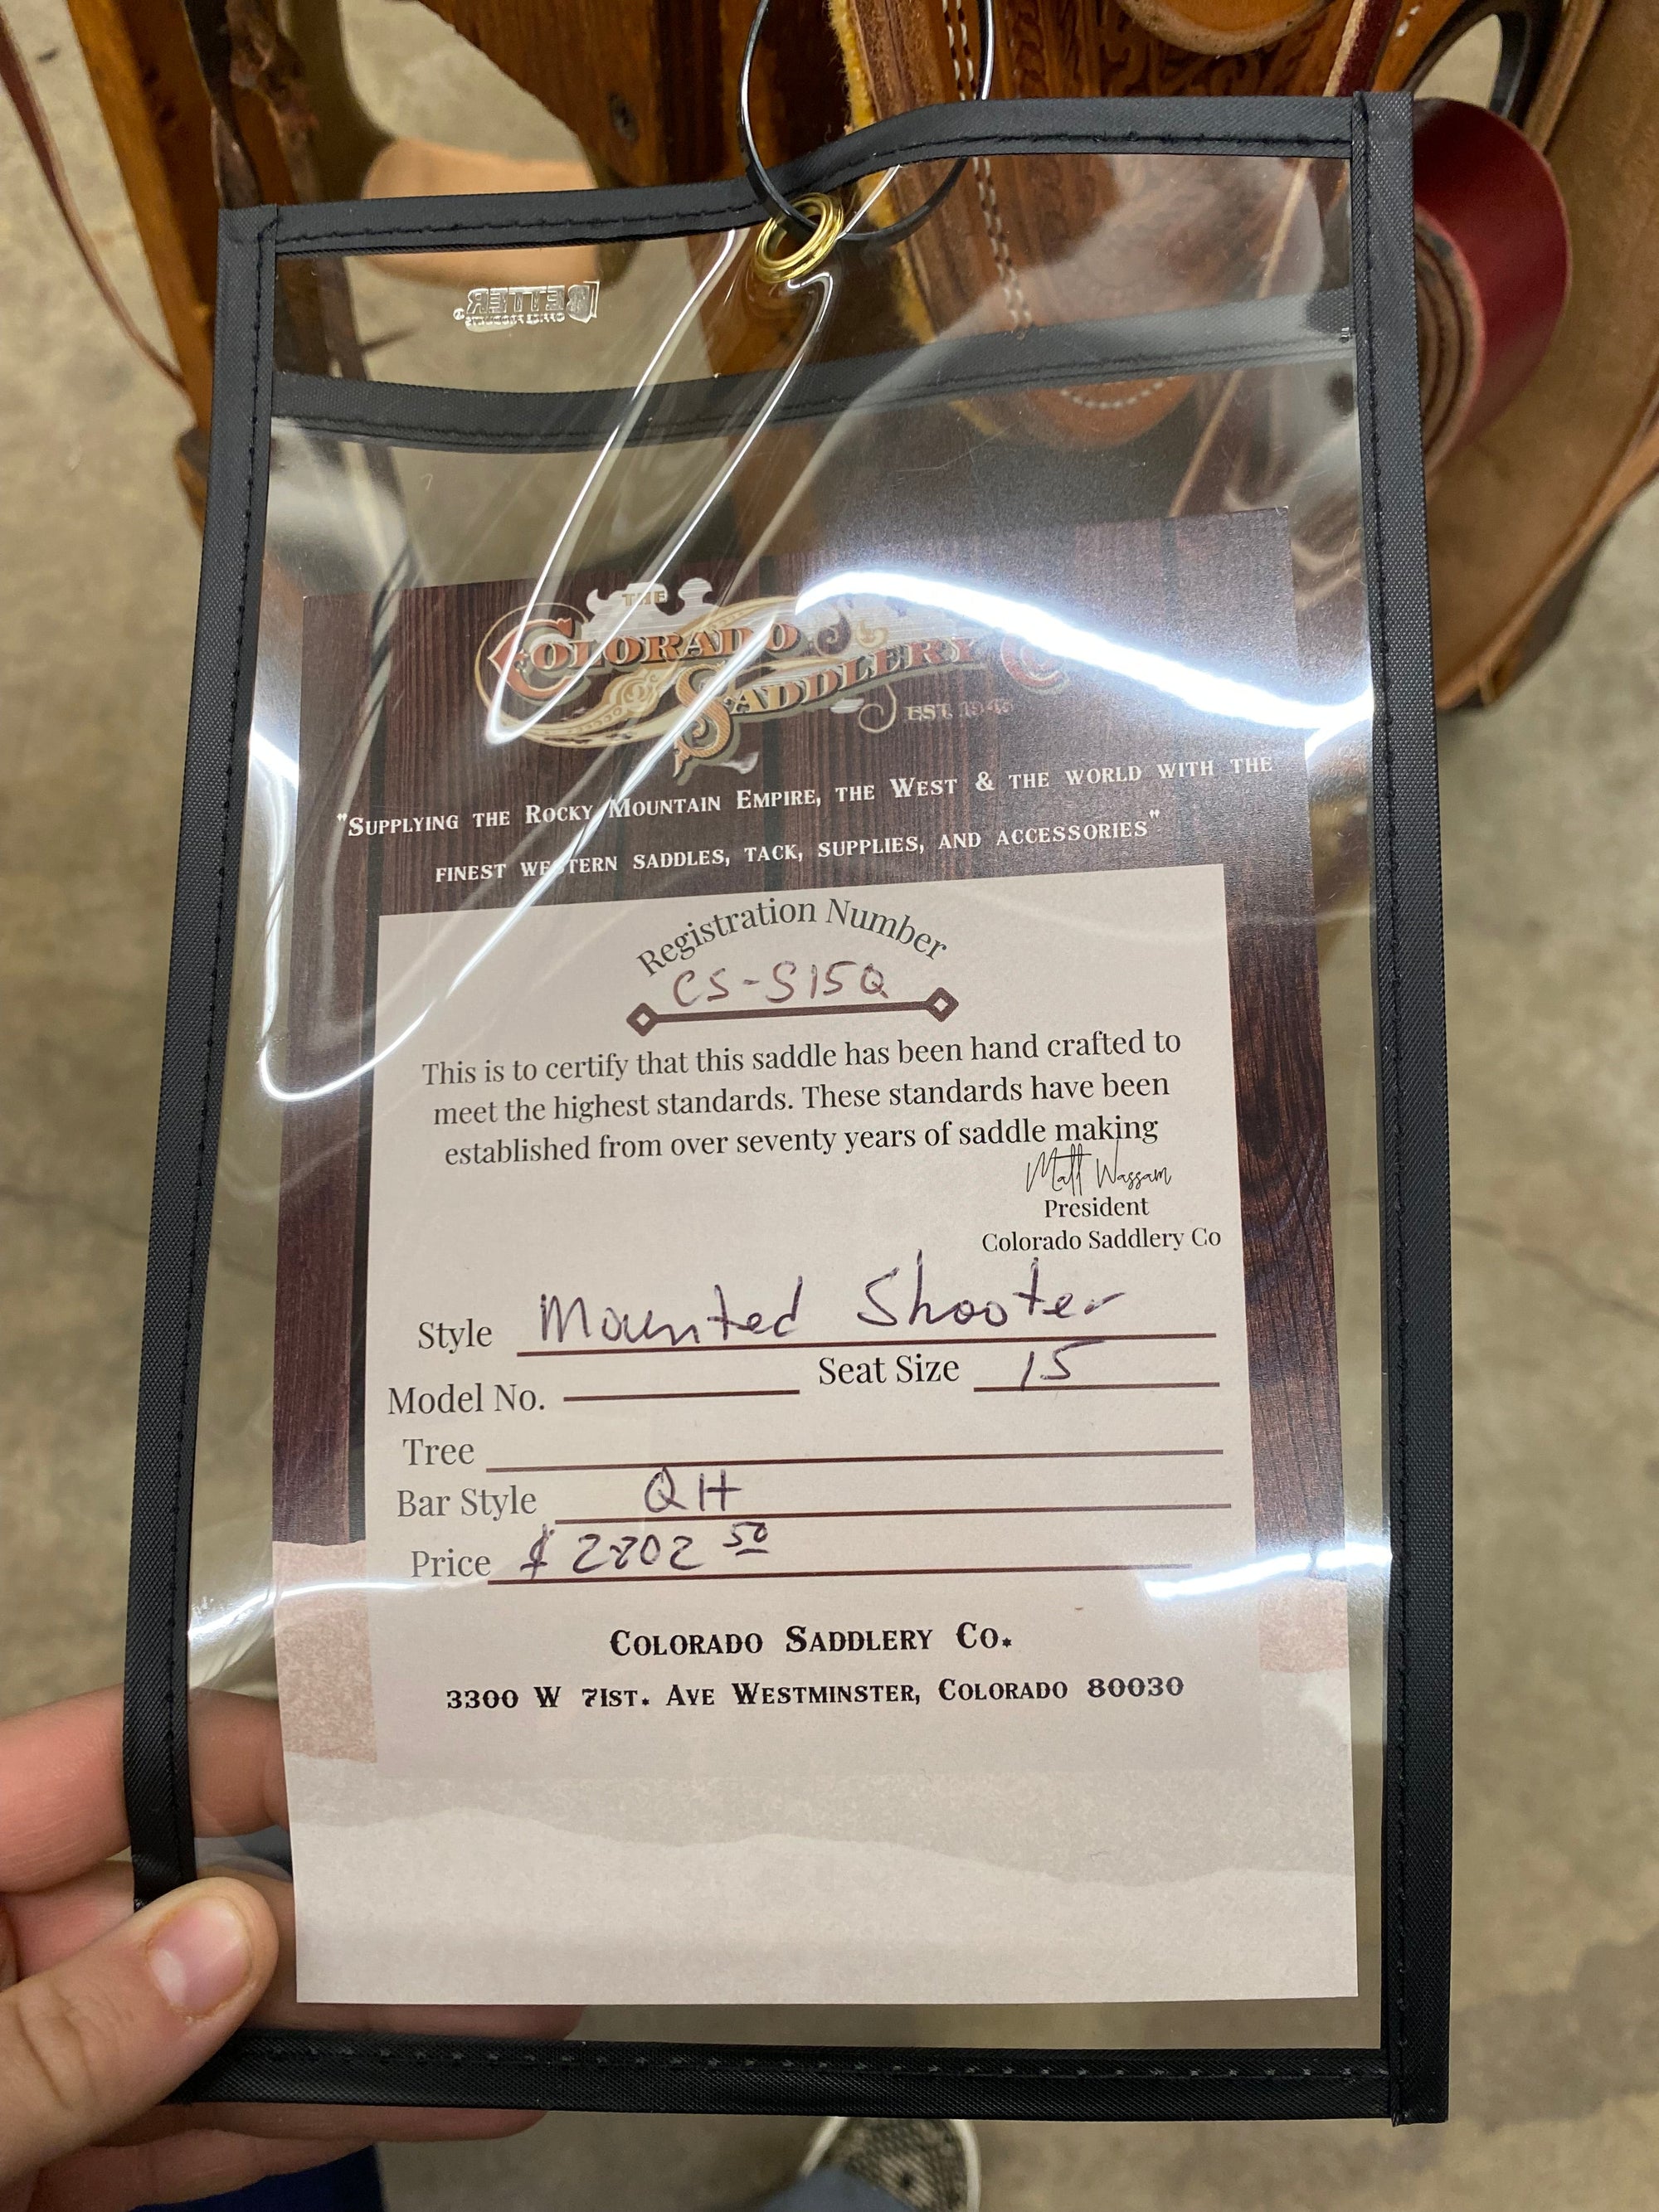 BETTER
OFFICE PRODUCTS
THE
COLORADO
SADDLERY Co
EST. 1945
"SUPPLYING THE ROCKY MOUNTAIN EMPIRE, THE WEST & THE WORLD WITH THE
FINEST WESTERN SADDLES, TACK, SUPPLIES, AND ACCESSORIES"
Registration Number
CS-S15Q
This is to certify that this saddle has been hand crafted to
meet the highest standards. These standards have been
established from over seventy years of saddle making
Matt Wassam
President
Colorado Saddlery Co
Style Mounted Shooter
Model No. Seat Size 15
Tree
Bar Style QH
Price $ 2202 50
COLORADO SADDLERY CO.
3300 W 71ST. AVE WESTMINSTER, COLORADO 80030